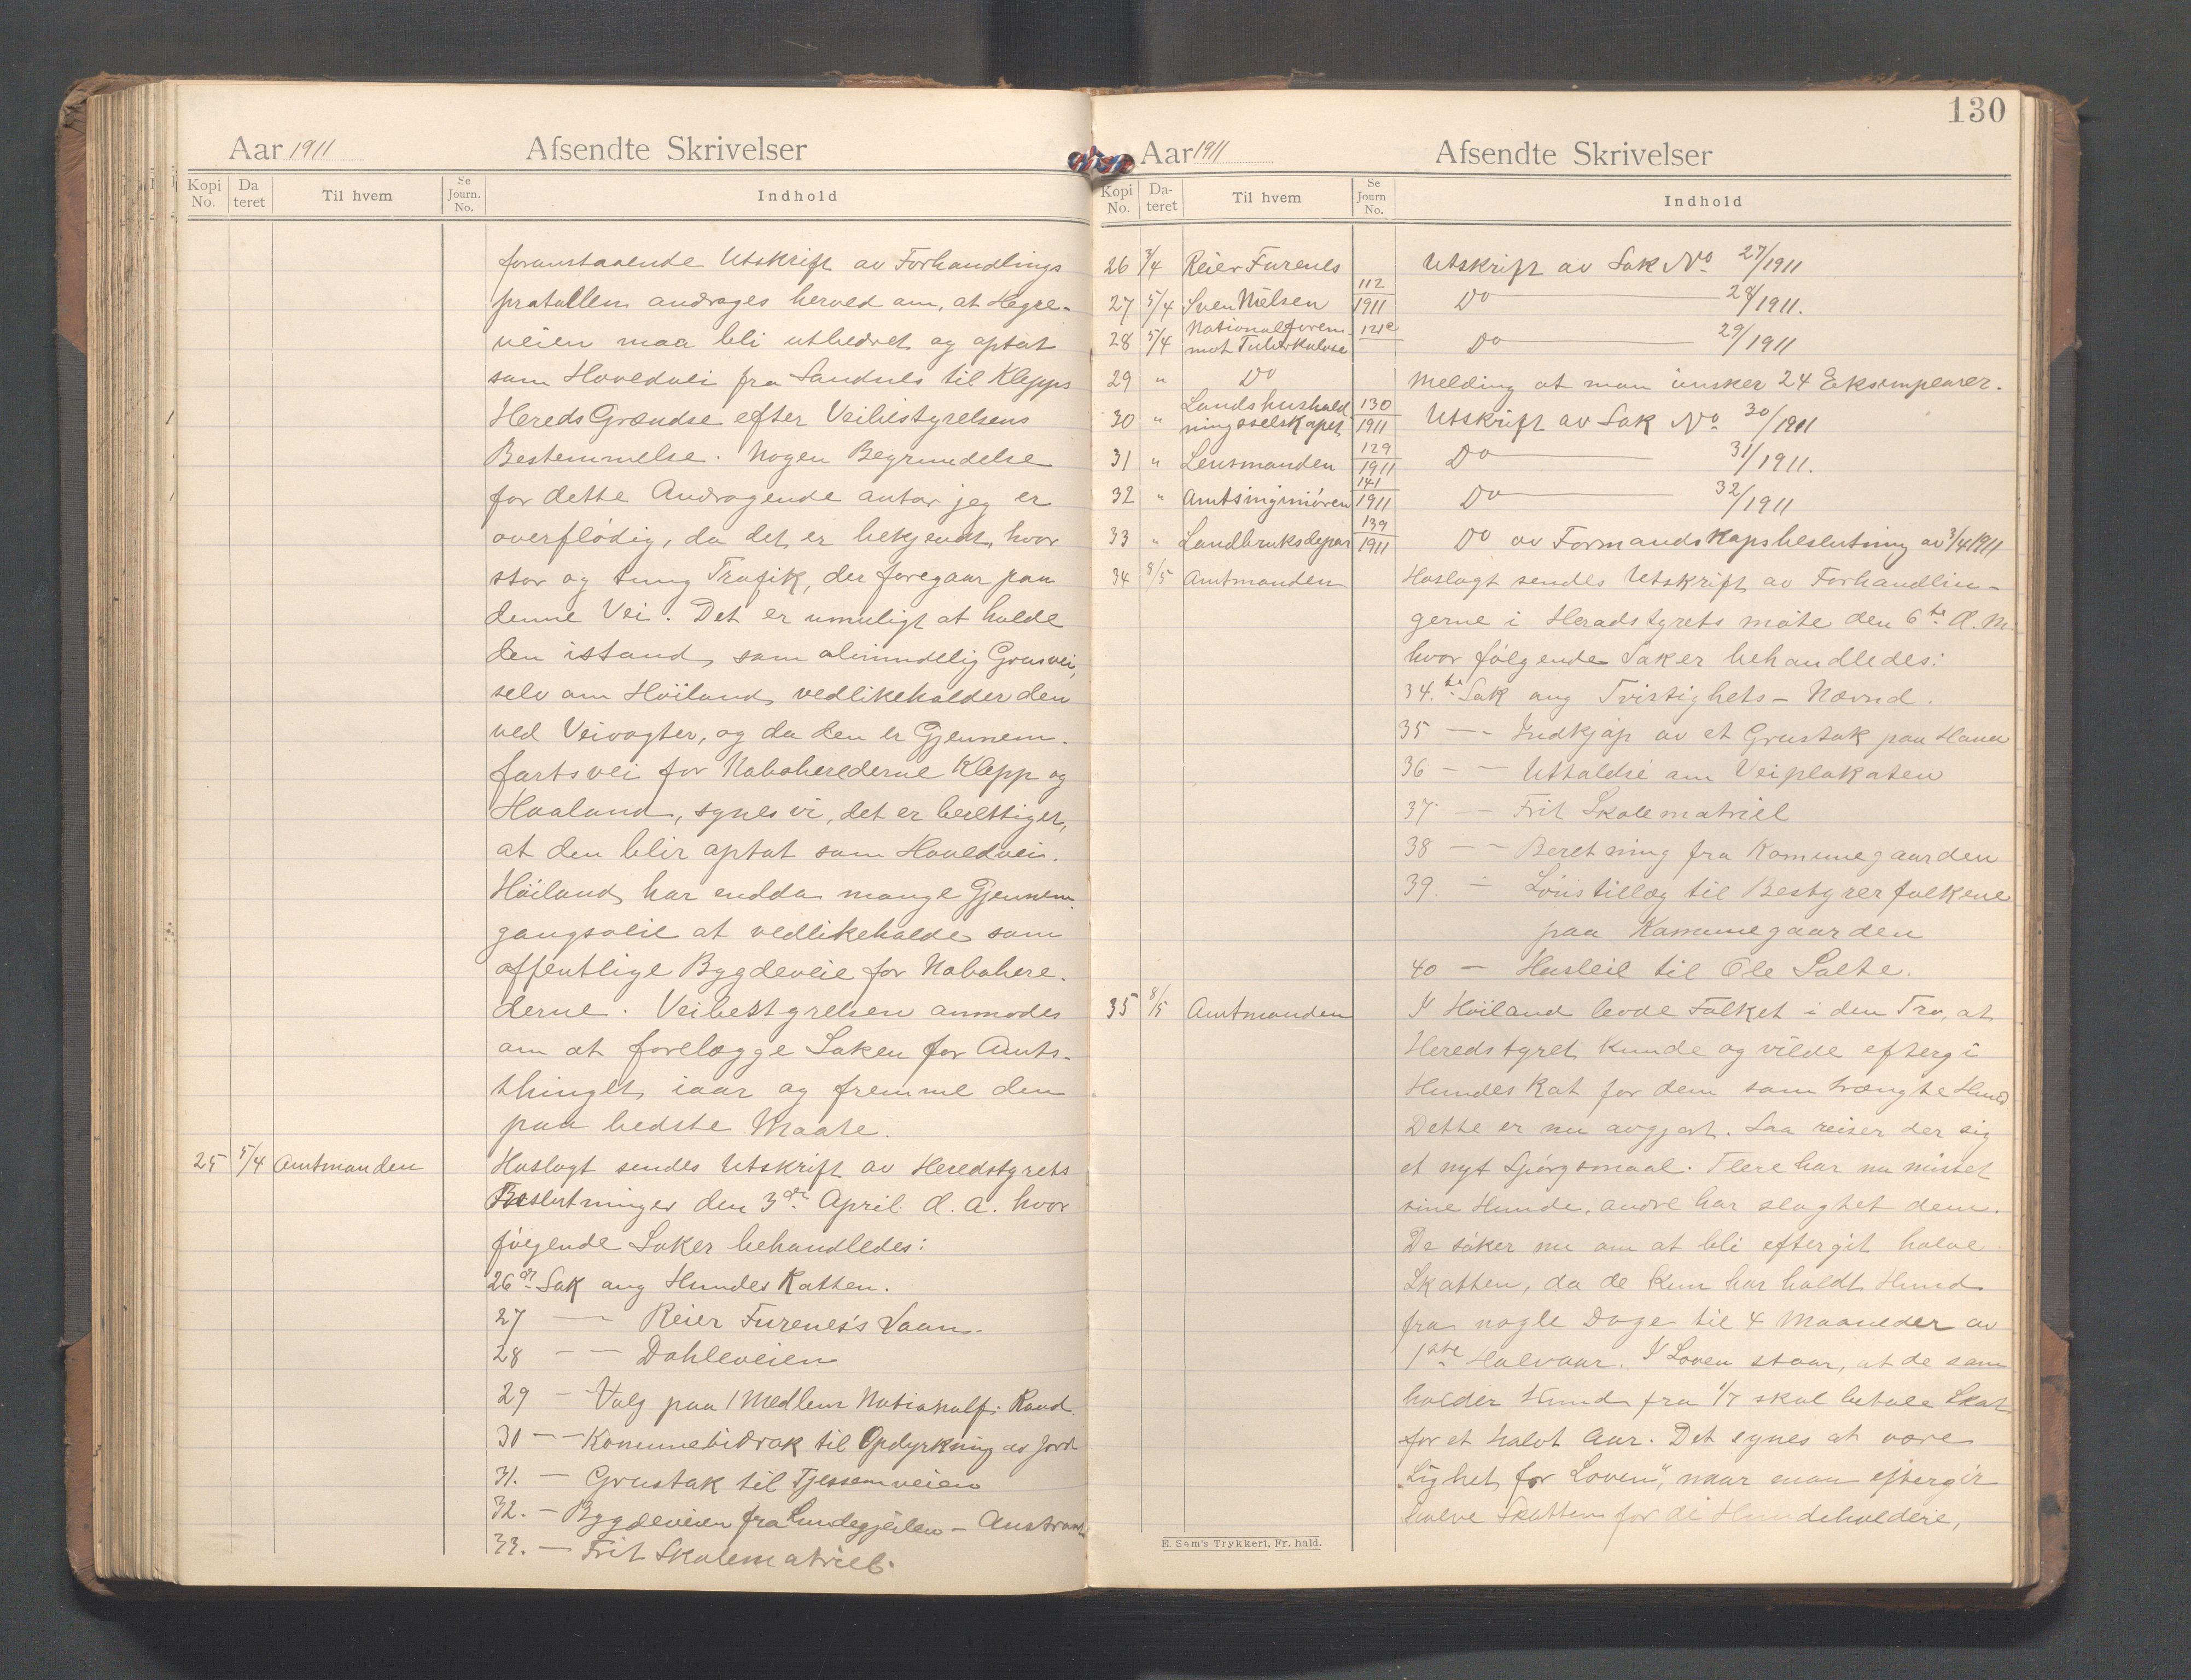 Aar 1911 Afsendte Skrivelser
Kopi No. Da teret Til hvem Se Journ. No. Indhold
foranstaaende Utskrift av Forhandlings
protokollen andrages herved om, at Hegre-
veien maa bli utbedret og optat
som Hovedvei fra Sandnes til Klepps
Hereds Grændse efter Veibestyrelsens
Bestemmelse. Nogen Begrundelse
for dette Andragende antar jeg er
overflödig, da det er bekjendt, hvor
stor og tung Trafik, der foregaar paa
denne Vei. Det er umuligt at holde
den istand som alimindelig Grusvei,
selv om Höiland vedlikeholder den
ved Veivogter, og da den er Gjennem-
fartsvei for Naboherederne Klepp og
Haaland, synes vi, det er berettiget,
at den blir optat som Hovedvei.
Höiland har endda mange Gjennem-
gangsveie at vedlikeholde som
offentlige Bygdeveie for Nabohere-
derne. Veibestyrelsen anmodes
om at forelægge Saken for Amts-
thinget iaar og fremme den
paa bedste Maate.
25 5/4 Amtmanden Hoslagt sendes Utskrift av Heredstyrets
Beslutninger den 3die April d. A. hvor
fölgende Saker behandledes:
26de Sak ang Hundeskatten.
27 — Reier Furenes's Laan.
28 — — Dahleveien
29 — Valg paa 1 Medlem Nationalf. Raad.
30 — — Komunebidrak til Opdyrkning av Jord
31. — Grustak til Tjessemveien
32. — Bygdeveien fra Lundegjeilen — Austraat
33. — Frit Skolematriel.
130
Aar 1911 Afsendte Skrivelser
Kopi No. Da- teret Til hvem Se Journ No. Indhold
26 3/4 Reier Furenes Utskrift av Sak No. 27/1911
27 5/4 Sven Nielsen 112/1911 Do — 28/1911.
28 5/4 Nationalforen. mot Tuberkulose 121e Do — 29/1911
29 " Do Melding at man önsker 24 Eksemplarer.
30 " Landshushold ningsselskapet 130/1911 Utskrift av Sak No. 30/1911
31 " Lensmanden 129/1911 Do — 31/1911.
32 " Amtsingeniören 141/1911 Do — 32/1911
33 " Landbruksdepar 139/1911 Do av Formandskapsbeslutning av 3/4 1911
34 8/5 Amtmanden Hoslagt sendes Utskrift av Forhandlin-
gerne i Heradstyrets möte den 6te d. M.
hvor fölgende Saker behandledes:
34.te Sak ang Tvistighets - Nævnd.
35 — - Indkjöp av et Grustak paa Hana
36 — — Uttaldse om Veiplakaten
37 — Frit Skolematriel
38 — — Beretning fra Komunegaarden
39. — Lönstillæg til Bestyrerfolkene
paa Komunegaarden
40 — Husleie til Ole Salte.
35 8/5 Amtmanden I Höiland levde Folket i den Tro, at
Heredstyret kunde og vilde eftergi
Hundeskat for dem som trængte Hund
Dette er nu avgjort. Saa reiser der sig
et nyt Spörgsmaal. Flere har nu mistet
sine Hunde, andre har slagtet dem.
De söker nu om at bli eftergit halve
Skatten, da de kun har holdt Hund
fra nogle Dage til 4 Maaneder av
1ste Halvaar. I Loven staar, at de som
holder Hund fra 1/7 skal betale Skat
for et halvt Aar. Det synes at være
„Lighet for Loven", naar man eftergir
halve Skatten for de Hundeholdere,
E. Sem's Trykkeri, Fr. hald.